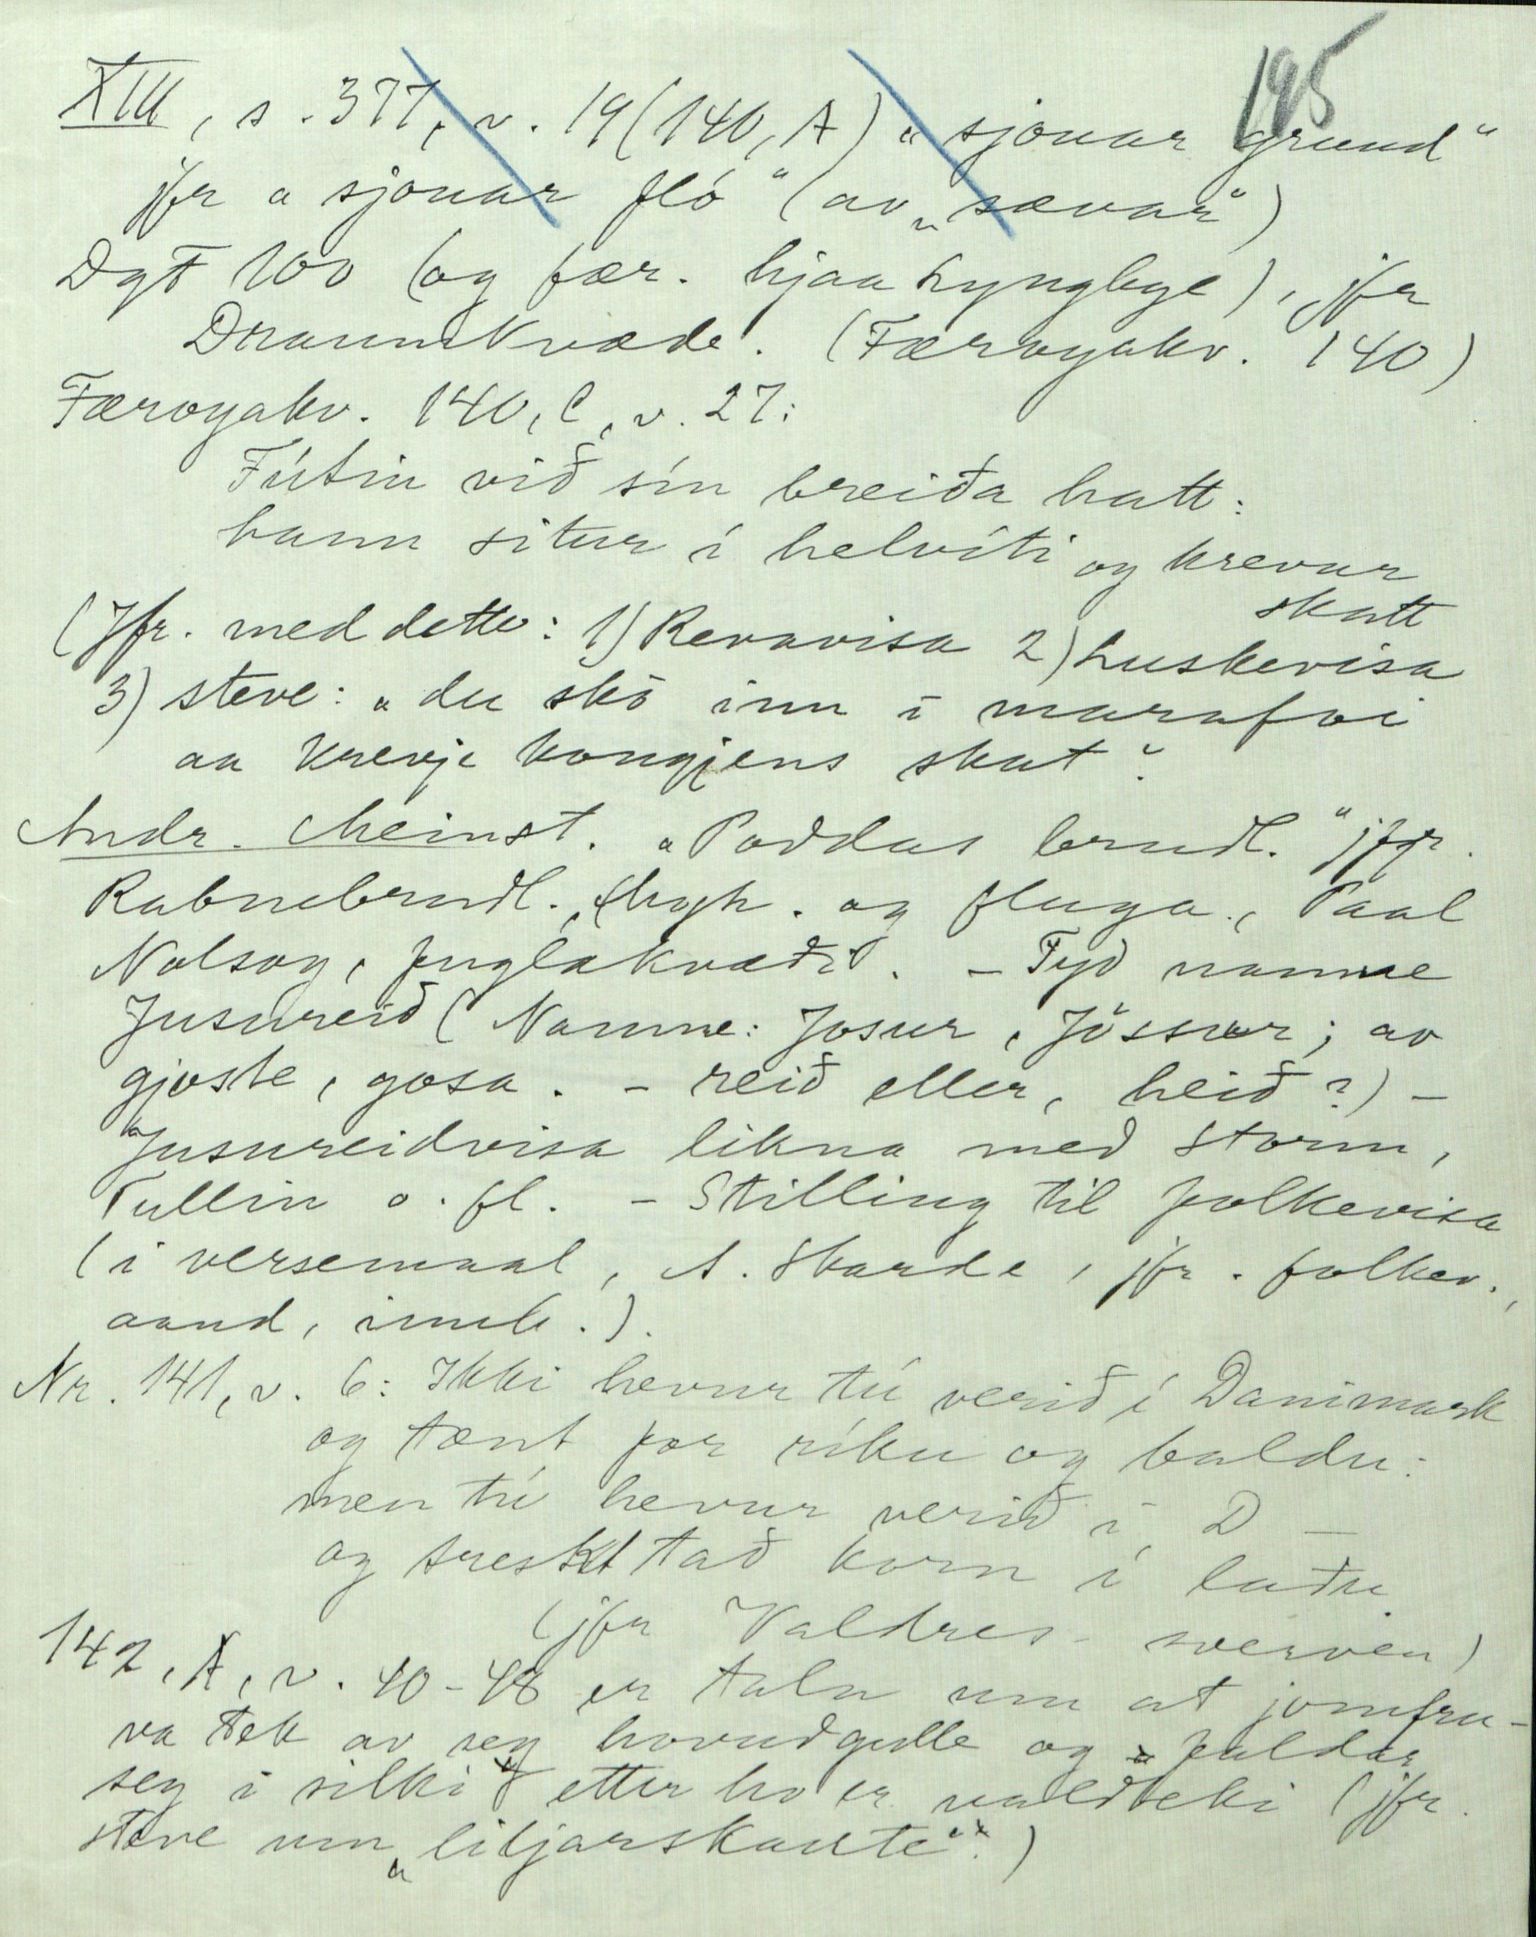 195
XIII, s. 377, v. 19 (140, A) "sjóvar grund"
jfr "sjovar fló" (av "sævar")
DgF 100 (og fær. hjaa Lyngbye), jfr
Draumkvæde. (Færøyakv. 140)
Færøyakv. 140, C, v. 27:
Fútin við sín breiða hatt:
hann situr í helvíti og krevur
skatt
(Jfr. med dette: 1) Revavisa 2) Luskevisa
3) steve: "du skò inn i
aa krevje kongjens skat"
Andr. Meinst. "Poddas brudl." jfr.
Rabnebrudl., og fluga, Paal
Nolsøy, fuglakvæði. – Tyd namne
Jusureið (Namne: Josur, Jössur; av
gjoste, gosa. – reið eller, heið?) –
"Jusureidvisa likna med Storm,
Tullin o. fl. – Stilling til folkevisa
(i versemaal, A. Skarde, jfr. folkev.,
aand, innh.).
Nr. 141, v. 6: Ikki hevur tú verið í Danimark
og tænt for ríku og baldu:
men tú hevur verið í D –
og treskt tað korn í laðu
(jfr Valdres-sverven)
142, A, v. 40-48 er tala um at jomfru-
va tek av seg hovudgulle og faldar
seg i silki etter ho er valdteki (jfr.
steve um "liljarskaute".)